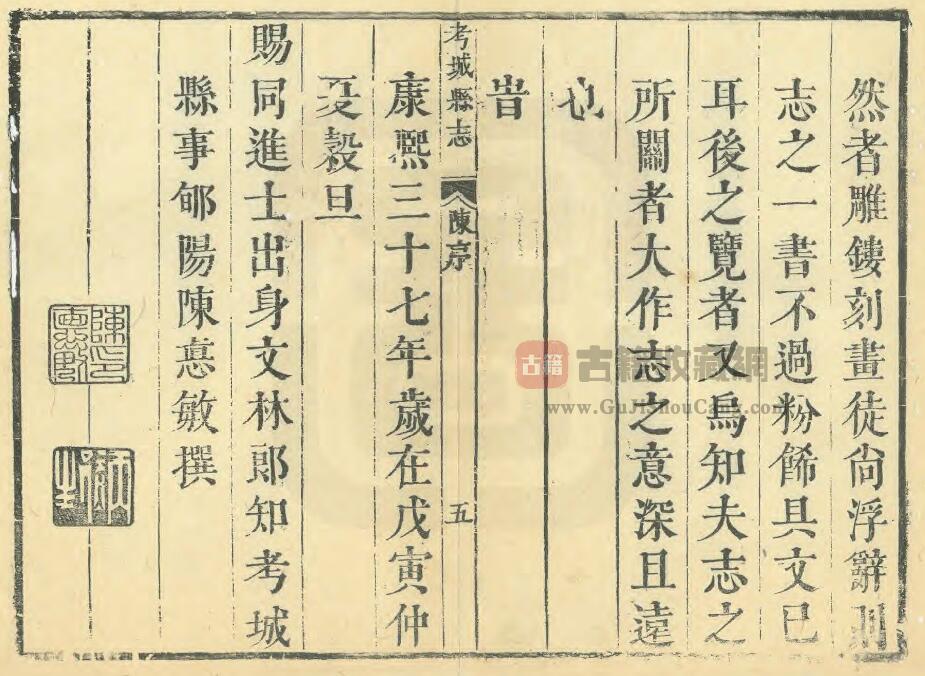 然者雕鏤刻畫徒尚浮辭則
志之一書不過粉餙具文已
耳後之覽者又烏知夫志之
所關者大作志之意深且遠
也
旹
考城縣志 陳序 五
康熙三十七年歲在戊寅仲
夏穀旦
賜同進士出身文林郎知考城
縣事郇陽陳悳敏撰
古籍 古籍收藏網
www.GuJiShouCang.com